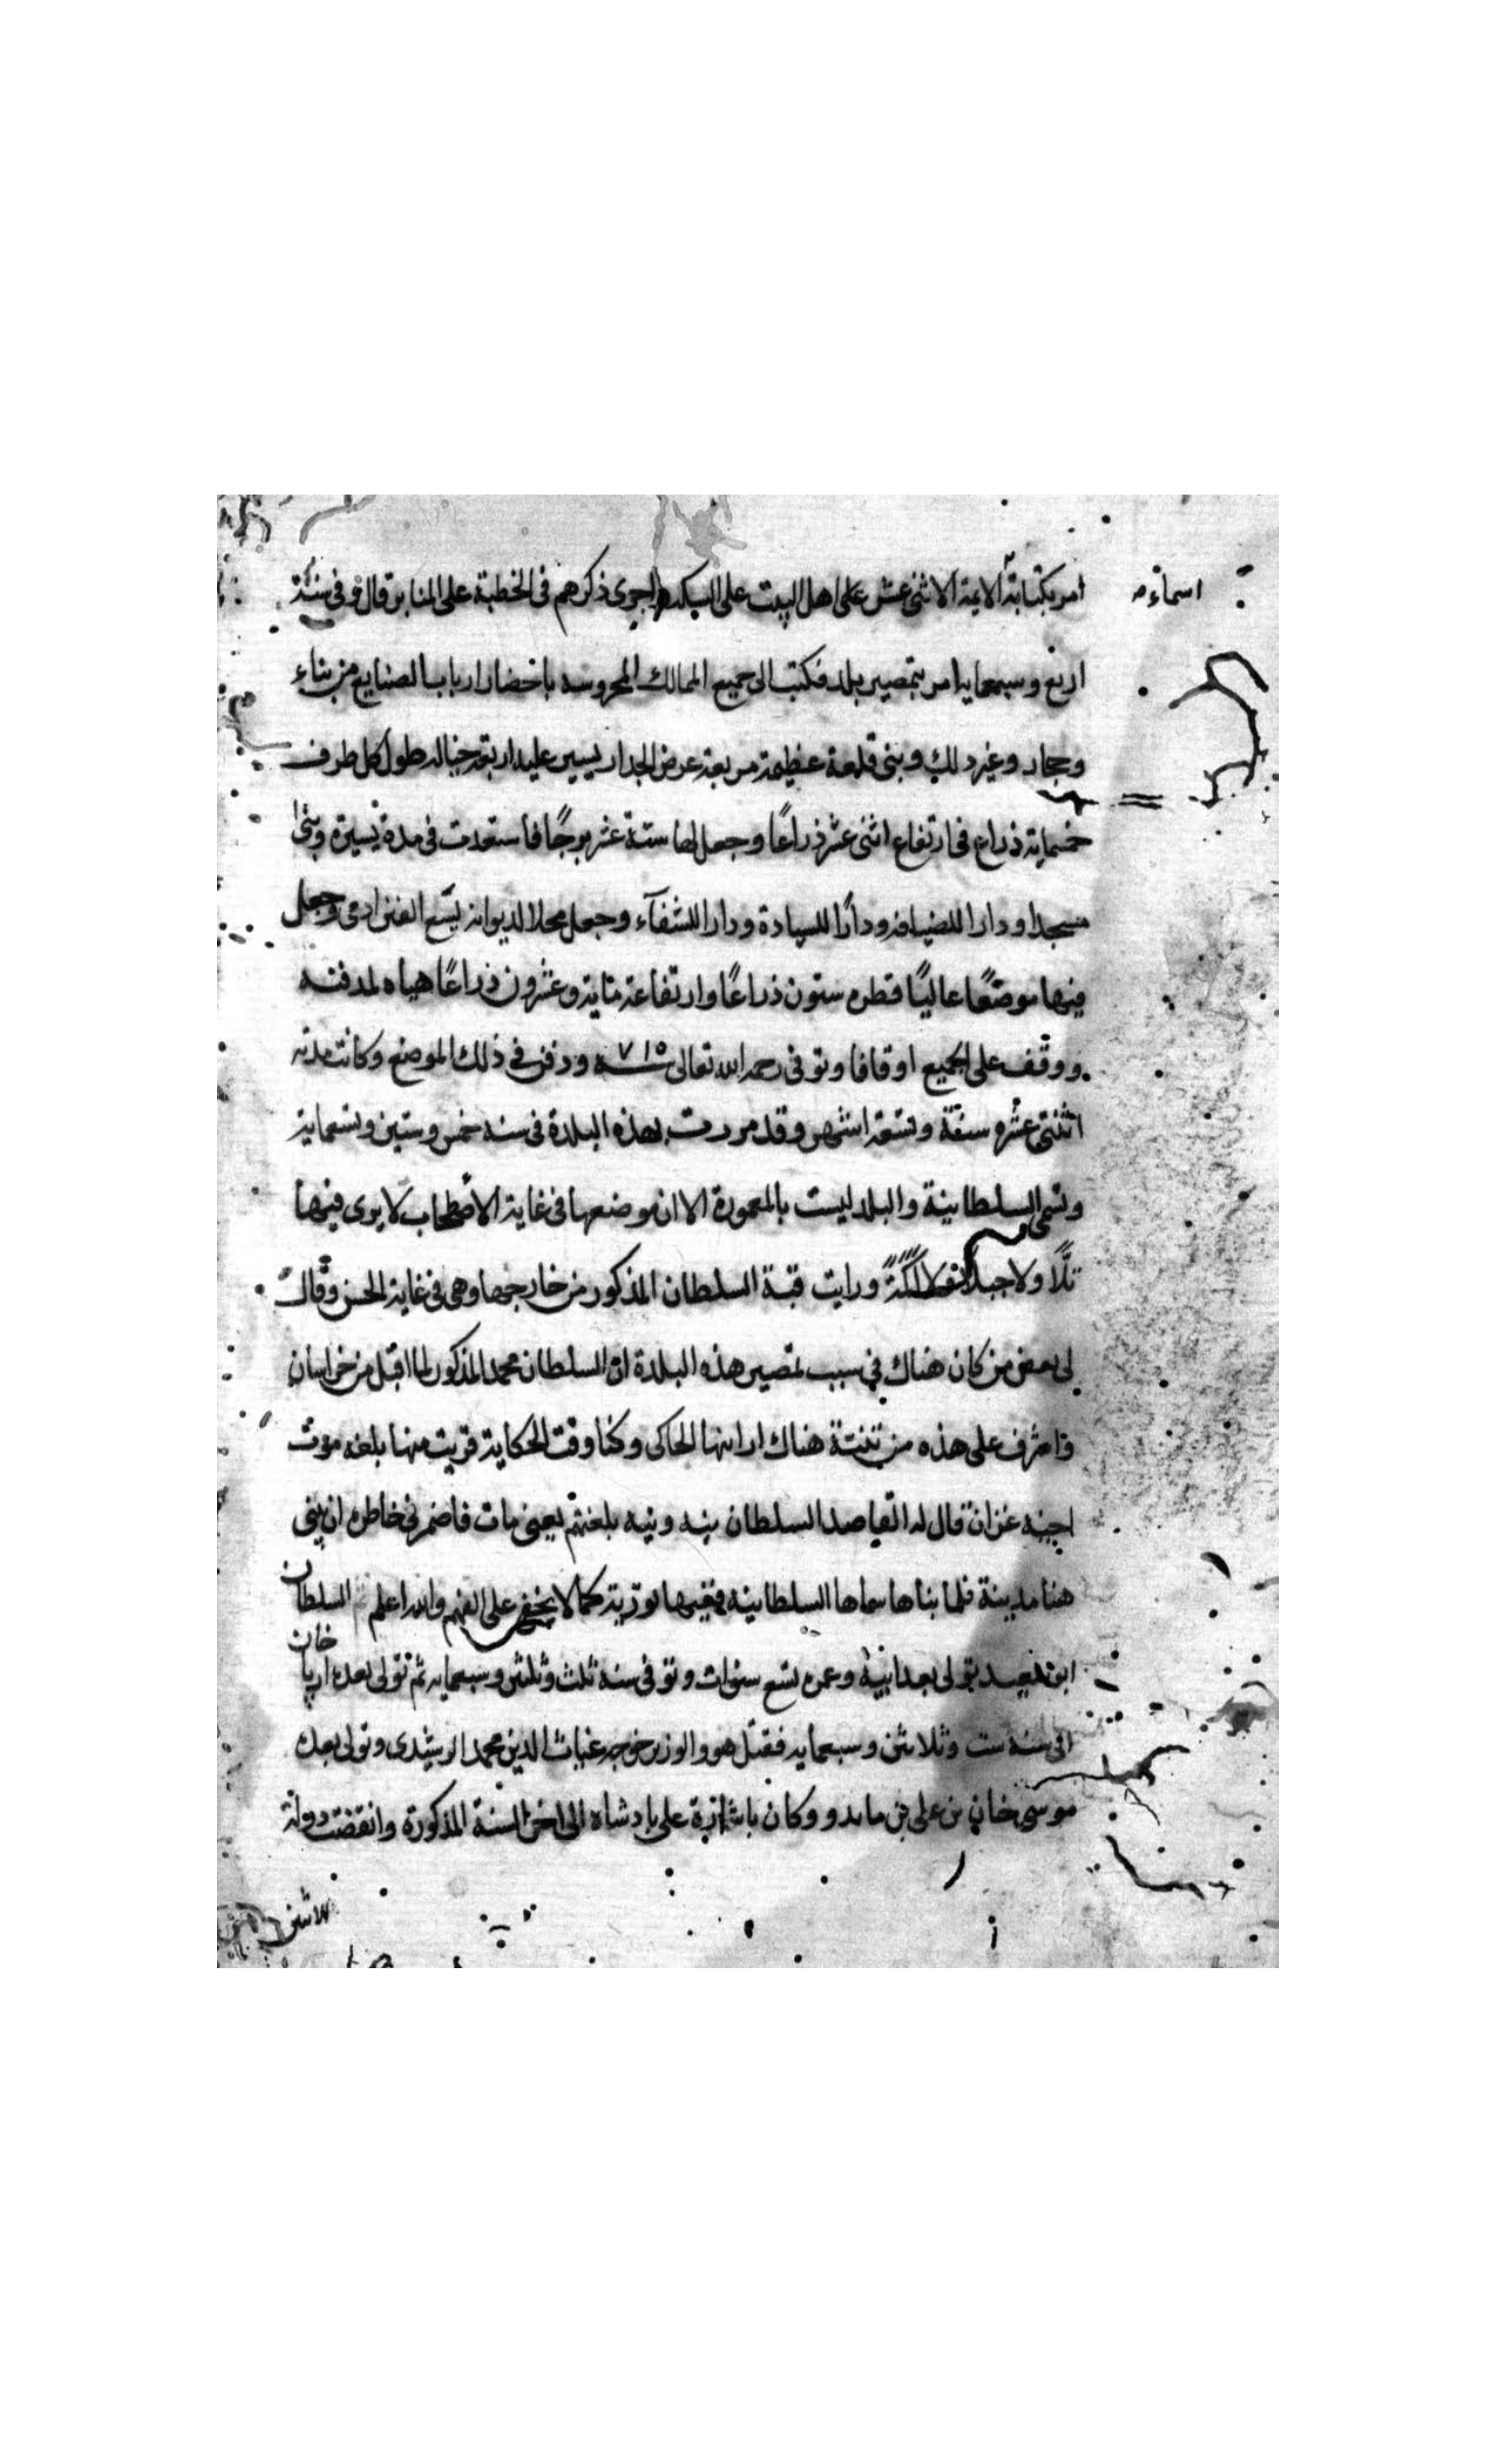 اسماء
امر بكتابة الايمة الاثنى عشر على اهل البيت على السكه واجرى ذكرهم فى الخطبة على المنابر قال فى سنة
اربع وسبعمايه امر بتمصير بلد فكتب الى جميع الممالك المحروسه باحضار ارباب الصنايع من بناء
وحجار وغير ذلك وبنى قلعة عظيمة مربعة عرض الجدار يسير عليه اربعة خيالة طول كل طرف
خمسماية ذراع فى ارتفاع اثنى عشر ذراعًا وجعل لها ستة عشر برجًا فاستعدت فى مدة يسيرة وبنى
مسجدا ودارا للضيافه ودارًا للسيادة ودارا للشفآء وجعل محلا لديوانه يسع الفين ادمى وجعل
فيها موضعًا عاليًا قطره ستون ذراعًا وارتفاعه مايه وعشرون ذراعًا هياه لمدفنه
ووقف على الجميع اوقافا وتوفى رحمه الله تعالى سنه ٧١٥ ودفن فى ذلك الموضع وكانت مدته
اثنتى عشره سنة وتسعة اشهر وقد مررت بهذه البلدة فى سنه خمس وستين وتسعماية
وتسمى السلطانية والبلد ليست بالمعمورة الا ان موضعها فى غاية لا يرى فيها
تلًّا ولا جبلًا ورايت قبة السلطان المذكور من خارجها وهى فى غاية الحسن وقال
لى بعض من كان هناك فى سبب تمصير هذه البلدة ان السلطان محمد المذكور لما اقبل من خراسان
واشرف على هذه من هناك ارانيها الحاكى وكنا وقت الحكاية قريب منها بلغه موت
اخيه غزان قال له القاصد السلطان ينه وينيه بلغتهم يعنى مات فاضمر فى خاطره ان يبنى
هنا مدينة فلما بناها سماها السلطانيه ففيها تورية كما لا يخفى على الفهم والله اعلم السلطان
ابو سعيد تولى بعد ابيه وعمره تسع سنوات وتوفى سنه ثلث وثلثين وسبعمايه ثم تولى بعده ارپا خان
الى سنه ست وثلاثين وسبعمايه فقتل هو والوزير خوجه غياث الدين محمد الرشيدى وتولى بعده
موسى خان بن على بن مايدو وكان على بادشاه الى اخر السنة المذكورة وانقضت دولة